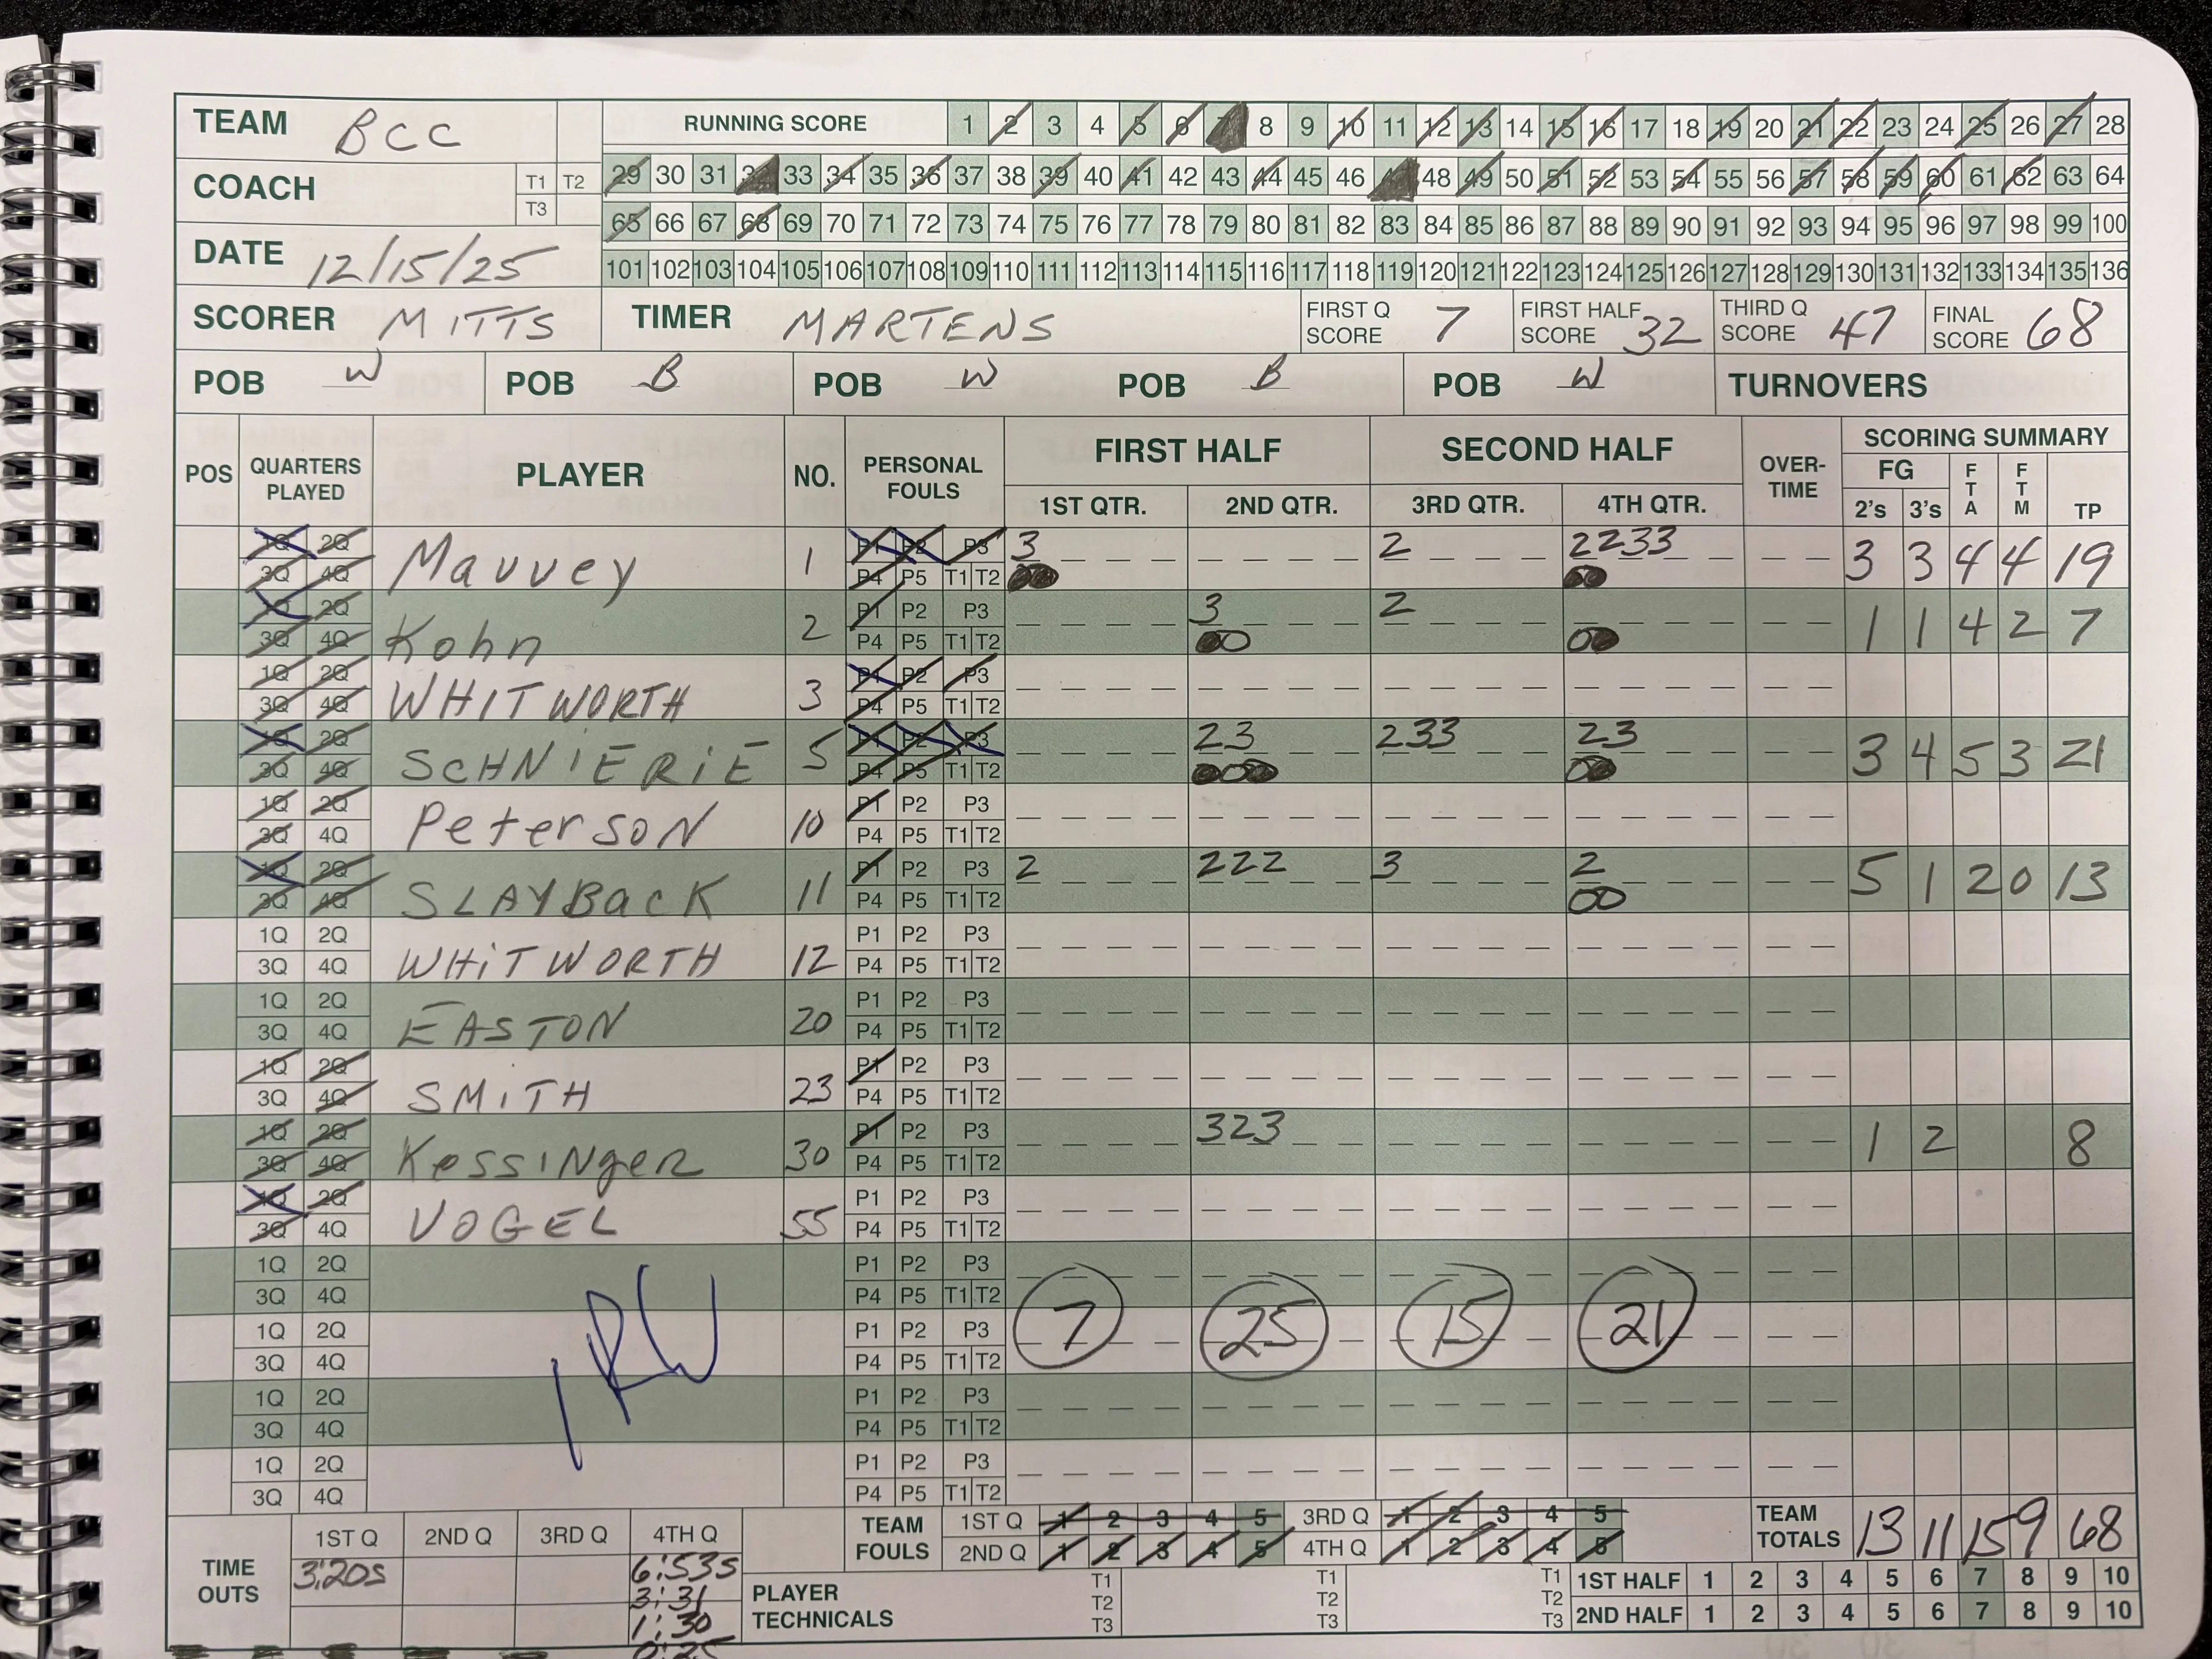 TEAM BCC RUNNING SCORE 1 2 3 4 5 6 7 8 9 10 11 12 13 14 15 16 17 18 19 20 21 22 23 24 25 26 27 28
COACH T1 T2 T3 29 30 31 32 33 34 35 36 37 38 39 40 41 42 43 44 45 46 47 48 49 50 51 52 53 54 55 56 57 58 59 60 61 62 63 64
65 66 67 68 69 70 71 72 73 74 75 76 77 78 79 80 81 82 83 84 85 86 87 88 89 90 91 92 93 94 95 96 97 98 99 100
DATE 12/15/25 101 102 103 104 105 106 107 108 109 110 111 112 113 114 115 116 117 118 119 120 121 122 123 124 125 126 127 128 129 130 131 132 133 134 135 136
SCORER MITTS TIMER MARTENS FIRST Q SCORE 7 FIRST HALF SCORE 32 THIRD Q SCORE 47 FINAL SCORE 68
POB W POB B POB W POB B POB W TURNOVERS
POS QUARTERS PLAYED PLAYER NO. PERSONAL FOULS FIRST HALF SECOND HALF OVER-TIME SCORING SUMMARY
1ST QTR. 2ND QTR. 3RD QTR. 4TH QTR. FG 2's 3's FTA FTM TP
1Q 2Q Mauvey 1 P1 P2 P3 3 2 2233 3 3 4 4 19
3Q 4Q P4 P5 T1 T2
1Q 2Q Kohn 2 P1 P2 P3 3 2 1 1 4 2 7
3Q 4Q P4 P5 T1 T2
1Q 2Q WHITWORTH 3 P1 P2 P3
3Q 4Q P4 P5 T1 T2
1Q 2Q SCHNIERIE 5 P1 P2 P3 23 233 23 3 4 5 3 21
3Q 4Q P4 P5 T1 T2
1Q 2Q Peterson 10 P1 P2 P3
3Q 4Q P4 P5 T1 T2
1Q 2Q SLAYBACK 11 P1 P2 P3 2 222 3 2 5 1 2 0 13
3Q 4Q P4 P5 T1 T2 00
1Q 2Q WHITWORTH 12 P1 P2 P3
3Q 4Q P4 P5 T1 T2
1Q 2Q EASTON 20 P1 P2 P3
3Q 4Q P4 P5 T1 T2
1Q 2Q SMITH 23 P1 P2 P3
3Q 4Q P4 P5 T1 T2
1Q 2Q Kessinger 30 P1 P2 P3 323 1 2 8
3Q 4Q P4 P5 T1 T2
1Q 2Q VOGEL 55 P1 P2 P3
3Q 4Q P4 P5 T1 T2
1Q 2Q P1 P2 P3
3Q 4Q P4 P5 T1 T2
1Q 2Q P1 P2 P3 7 25 15 21
3Q 4Q P4 P5 T1 T2
1Q 2Q P1 P2 P3
3Q 4Q P4 P5 T1 T2
1Q 2Q P1 P2 P3
3Q 4Q P4 P5 T1 T2
TIME OUTS 1ST Q 2ND Q 3RD Q 4TH Q TEAM FOULS 1ST Q 1 2 3 4 5 3RD Q 1 2 3 4 5 TEAM TOTALS 13 11 15 9 68
2ND Q 1 2 3 4 5 4TH Q 1 2 3 4 5
3:20s 6:53s
3:31
1:30
0:25
PLAYER TECHNICALS T1 T2 T3 T1 T2 T3 T1 T2 T3 1ST HALF 1 2 3 4 5 6 7 8 9 10
2ND HALF 1 2 3 4 5 6 7 8 9 10